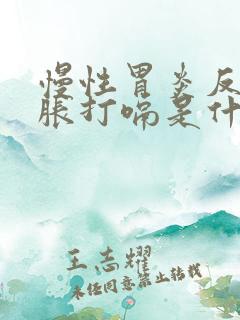 慢性胃炎反
胀打嗝是什
王志耀
未经同意禁止转载